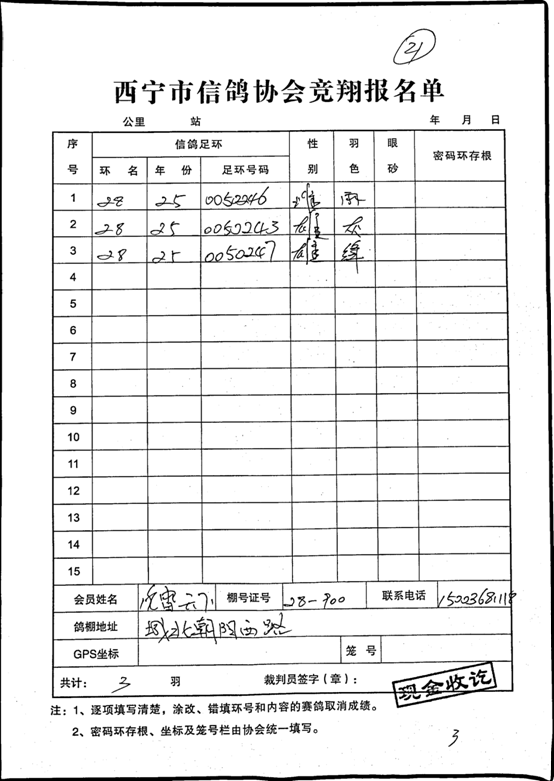 21
西宁市信鸽协会竞翔报名单
公里 站 年 月 日
序号 信鸽足环 性别 羽色 眼砂 密码环存根
环 名 年 份 足环号码
1 28 25 0052246 雄
2 28 25 0050243 雄 灰
3 28 25 0050247 雄 绛
4
5
6
7
8
9
10
11
12
13
14
15
会员姓名 棚号证号 28-900 联系电话
鸽棚地址 城北朝阳西路
GPS坐标 笼 号
共计: 3 羽 裁判员签字(章):
现金收讫
注:1、逐项填写清楚,涂改、错填环号和内容的赛鸽取消成绩。
2、密码环存根、坐标及笼号栏由协会统一填写。
3